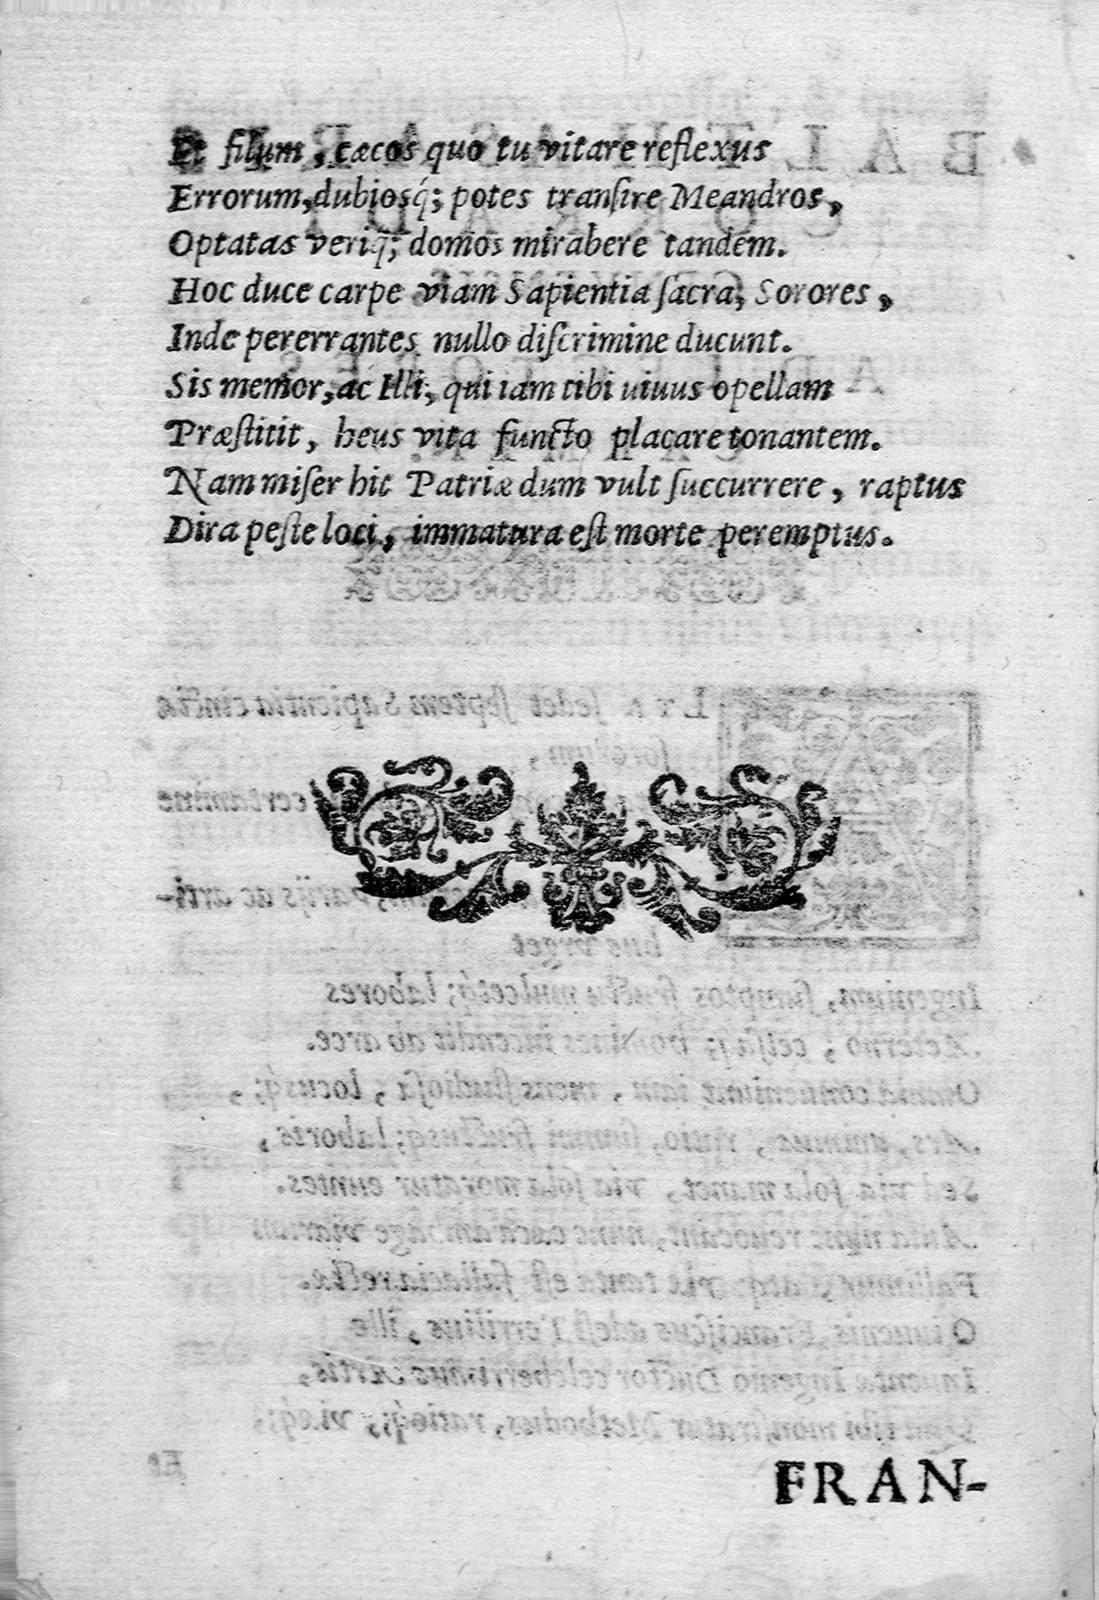 Et filum, cæcos quo tu vitare reflexus
Errorum, dubiosq́; potes tranſire Meandros,
Optatas veriq́; domos mirabere tandem.
Hoc duce carpe viam Sapientia ſacra, Sorores,
Inde pererrantes nullo diſcrimine ducunt.
Sis memor, ac Illi, qui iam tibi uiuus opellam
Præſtitit, heus vita functo placare tonantem.
Nam miſer hic Patriæ dum vult ſuccurrere, raptus
Dira peſte loci, immatura eſt morte peremptus.
FRAN-